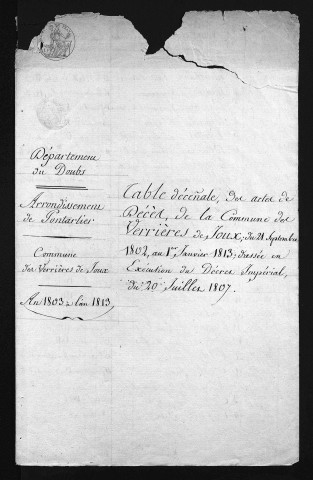 Département
du Doubs
Arrondissement
de Pontarlier
Commune
des Verrières de Joux
An 1803 à l'an 1813
Table décénale, des actes de
Décès, de la Commune des
Verrières de Joux; du 21 Septembre
1802, au 1er Janvier 1813; dressée en
Execution du Décret Impérial,
du 20 Juillet 1807.